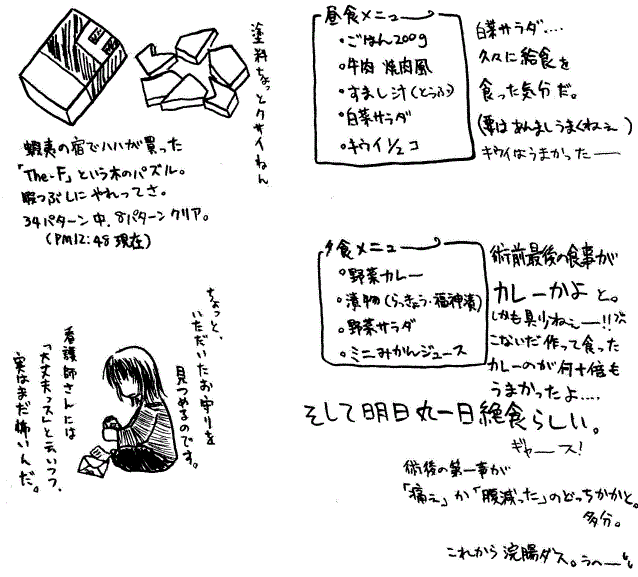 塗料ちょっとクサイねん
蝦夷の宿でハハが買った
「The-F」という木のパズル。
暇つぶしにやれってさ。
34パターン中、8パターンクリア。
(PM12:48現在)
昼食メニュー
・ごはん200g
・牛肉 焼肉風
・すまし汁(とうふ)
・白菜サラダ
・キウイ1/2コ
白菜サラダ‥‥
久々に給食を
食った気分だ。
(要はあんましうまくねぇ)
キウイはうまかったー
夕食メニュー
・野菜カレー
・漬物(らっきょう・福神漬)
・野菜サラダ
・ミニみかんジュース
術前最後の食事が
カレーかよ と。
しかも具少ねぇー!!
こないだ作って食った
カレーのが何十倍も
うまかったよ‥‥
そして明日丸一日絶食らしい。
ギャース!
術後の第一声が
「痛ぇ」か「腹減った」のどっちかかと。
多分。
これから浣腸ダス。うへー
ちょっと、
いただいたお守りを
見つめるのです。
看護師さんには
「大丈夫っス」と云いつつ、
実はまだ怖いんだ。